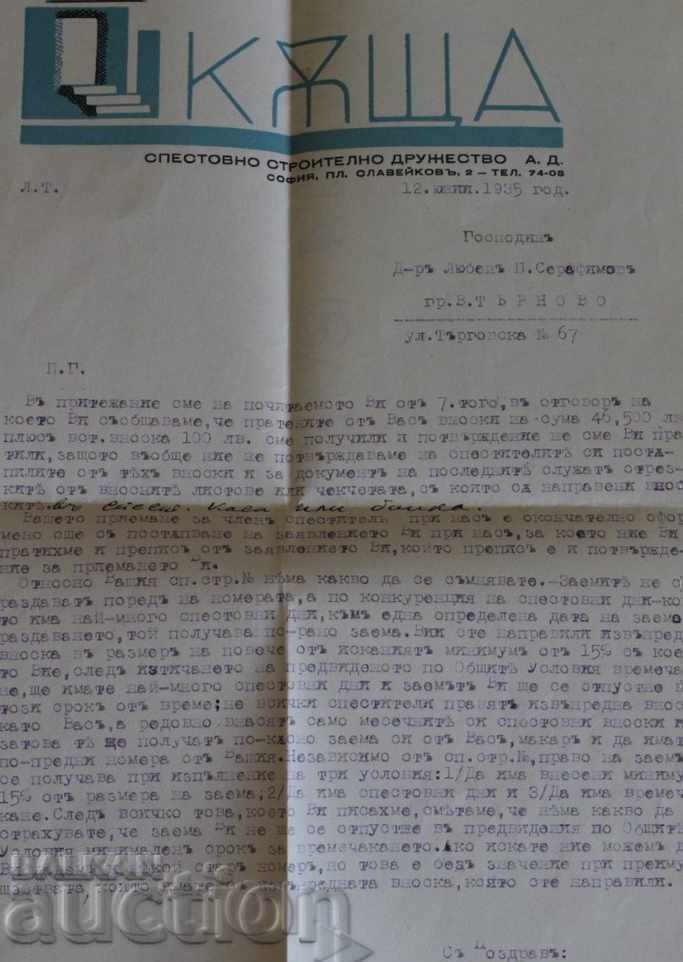 КѪЩА
СПЕСТОВНО СТРОИТЕЛНО ДРУЖЕСТВО А. Д.
СОФИЯ, ПЛ. СЛАВЕЙКОВЪ, 2 — ТЕЛ. 74-08
Л.Т.
12.юнии.1935 год.
Господинъ
Д-ръ Любенъ П.Серафимовъ
гр.В.ТЪРНОВО
ул.Търговска № 67
П.Г.
Въ притежание сме на почитаемото Ви отъ 7.того, въ отговоръ на
което Ви съобщаваме, че пратените отъ Васъ вноски на сума 46,500 лв
плюс вст.вноска 100 лв. сме получили и потвърждение не сме Ви пра
тили, защото въобще ние не потвърждаваме на спестителитѣ си поста-
пилите отъ тѣхъ вноски и за документъ на последнитѣ служатъ отрез-
китѣ отъ вноснитѣ листове или чекчетата, съ които сѫ направени внос
китѣ въ спест. каса или банка.
Вашето приемане за членъ спеститель при насъ е окончателно офор
мено още съ постѫпване на заявлението Ви при насъ, за което ние Ви
пратихме и преписъ отъ заявлението Ви, който преписъ е и потвържде-
ние за приемането Ви.
Относно Вашия сп.стр.№ нѣма какво да се съмнявате.-Заемитѣ не с
раздаватъ поредъ на номерата, а по конкуренция на спестовни дни-ко
то има най-много спестовни дни, къмъ една определена дата на заемо
раздаването, той получава по-рано заема. Вии сте направили извънред
вноска въ размеръ на повече отъ исканиятъ минимумъ отъ 15% съ кое
то Вие, следъ изтичането на предвиденото по Общитѣ Условия времеча
не, ще имате най-много спестовни дни и заемътъ Ви ще се отпустне
този срокъ отъ време; не всички спестители правятъ извънредна внос
като Васъ, а редовно внасятъ само месечнитѣ си спестовни вноски и
затова тѣ ще получатъ по-късно заема си отъ Васъ, макаръ и да имат
по-предни номера отъ Вашия. Независимо отъ сп.стр.№, право на заемъ
се получава при изпълнение на три условия: 1/Да има внесени миниму
15% отъ размера на заема, 2/Да има спестовни дни и 3/Да има времеча
кане. Следъ всичко това, което Ви писахме, смѣтаме, че нѣма какво да
страхувате, че заема Ви не ще се отпустне въ предвидения по Общитѣ
Условия минималенъ срокъ за времечакането. Ако искате ние можемъ д
номеръ, но това е безъ значение при преиму
ществата, които имате отъ извънредната вноска, която сте направили.
Съ Поздравъ:
БАЛКАН
auction